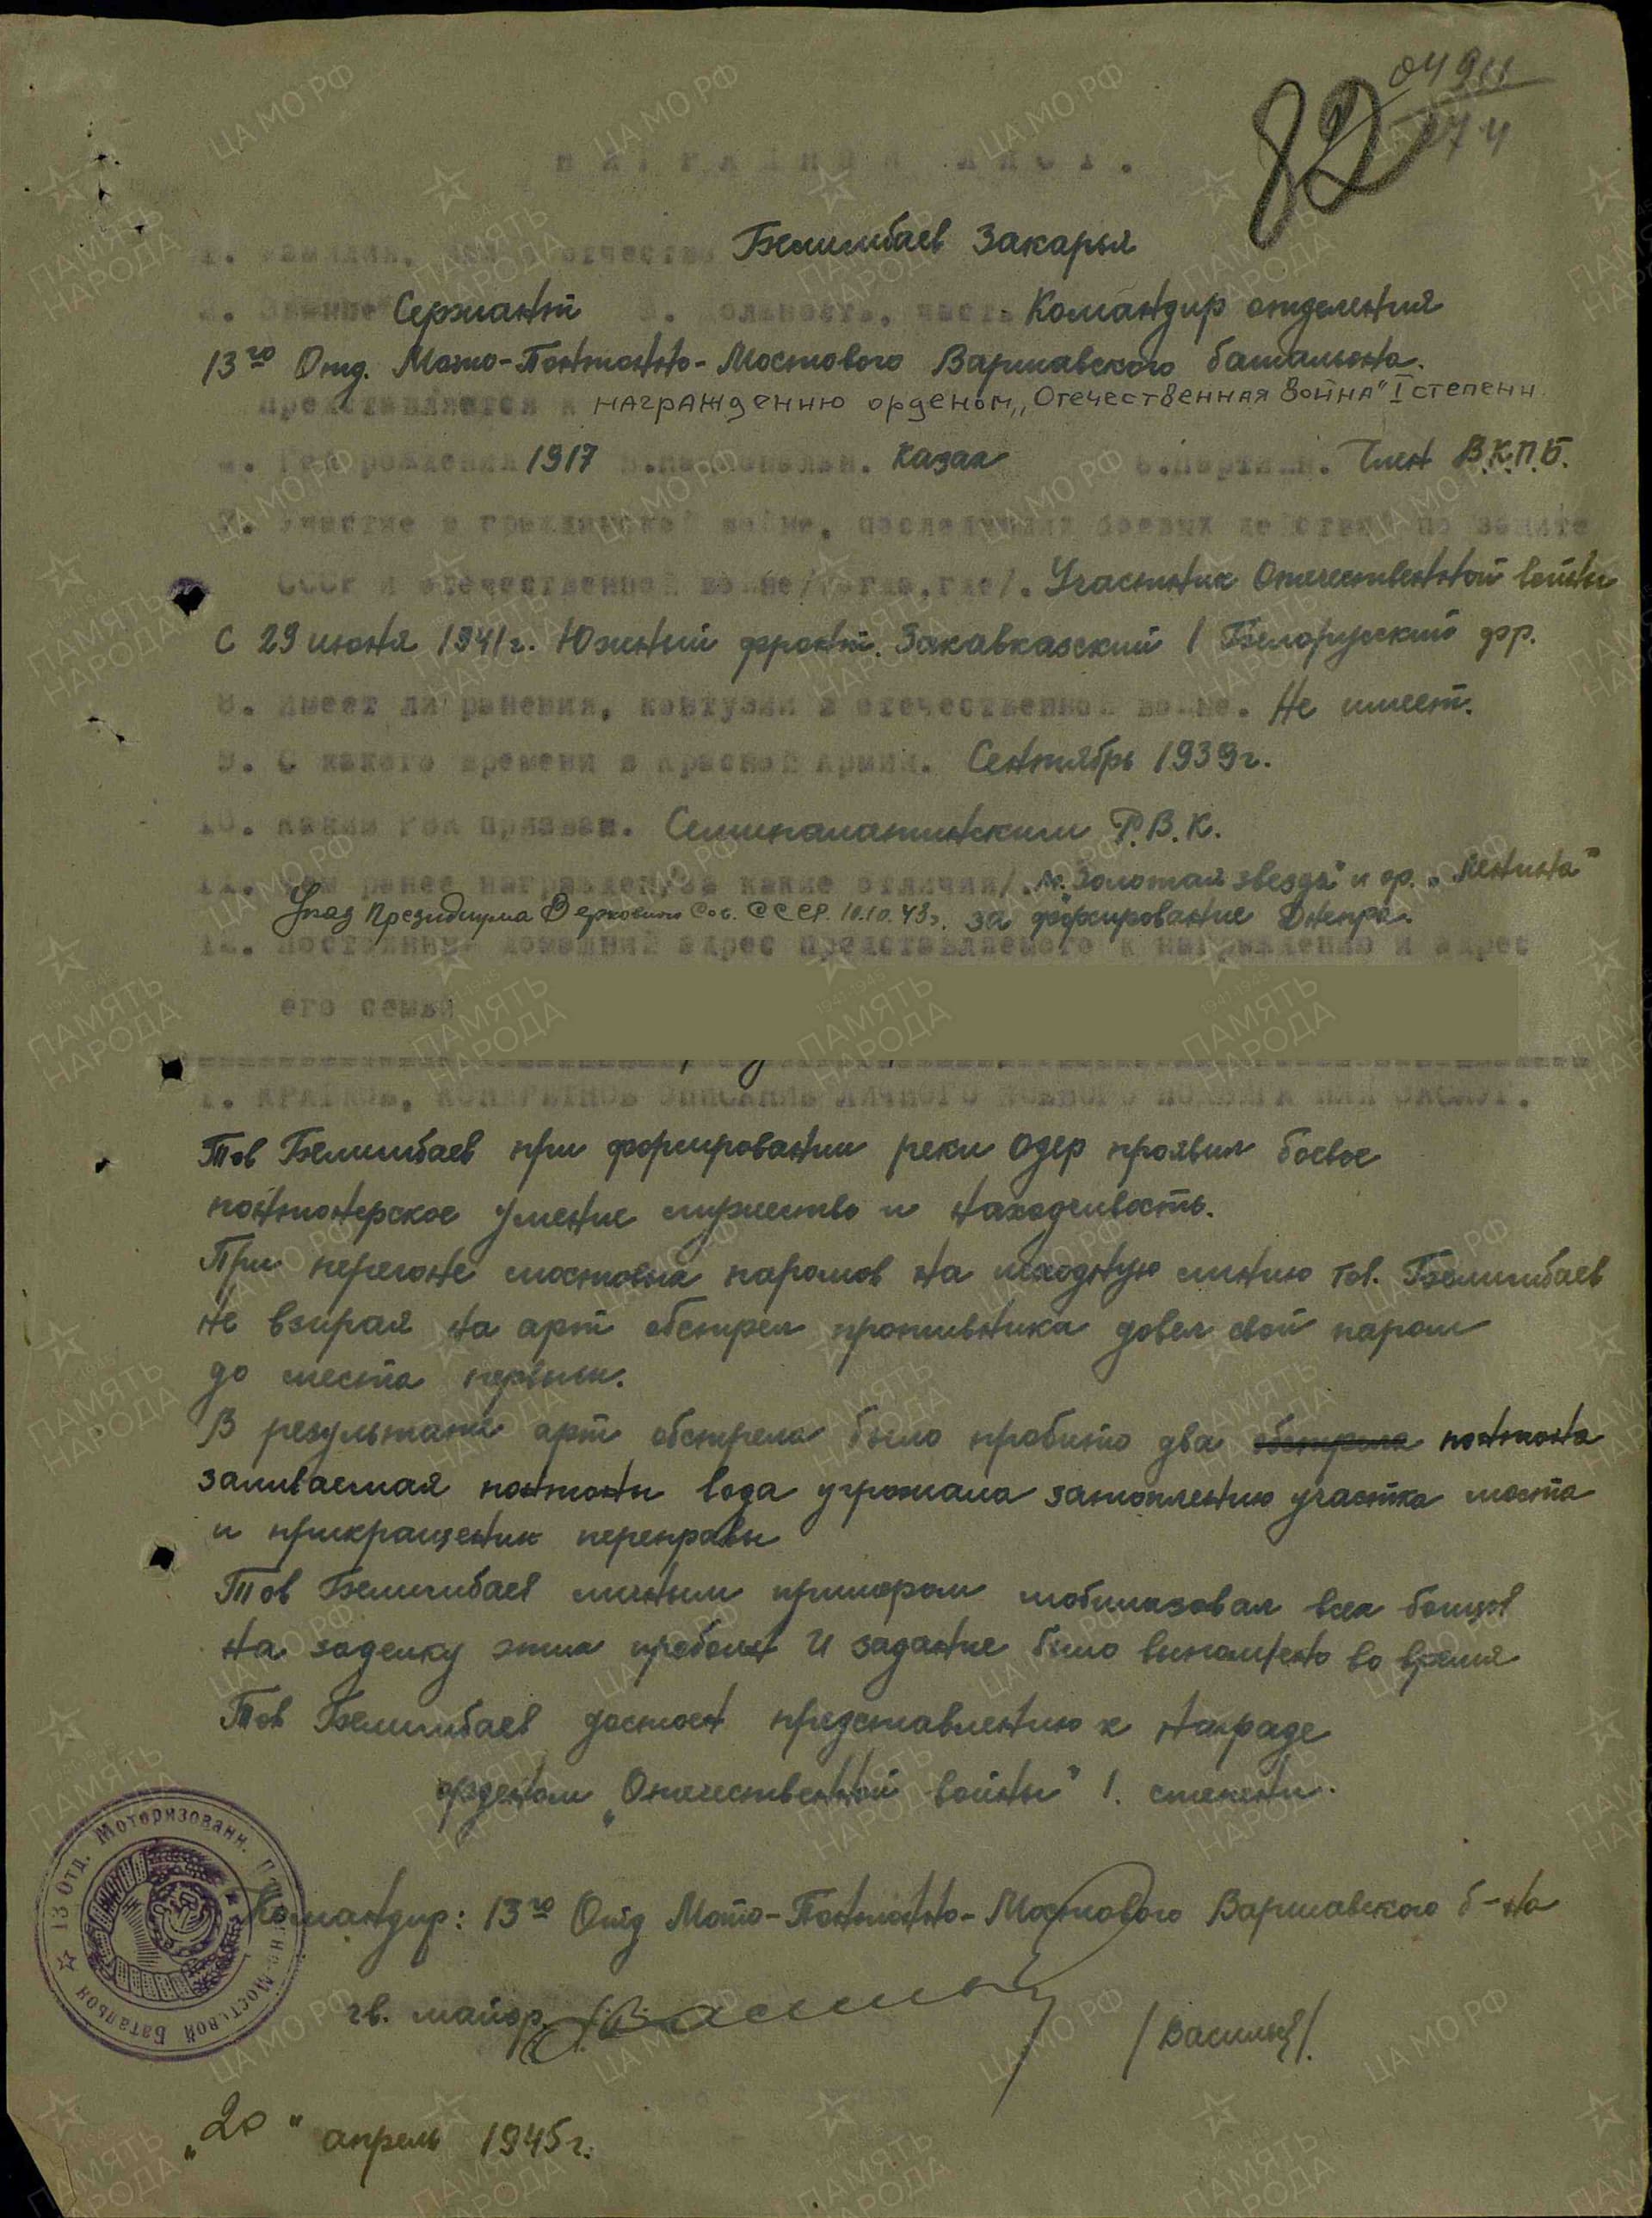 04911
82 274
НАГРАДНОЙ ЛИСТ.
1. Фамилия, имя и отчество Белигибаев Закарья
2. Звание Сержант 3. Должность, часть Командир отделения
13го Отд. Мото-Понтонно-Мостового Варшавского батальона.
представляется к награждению орденом „Отечественная война" I степени
4. Год рождения 1917 5. национальн. Казах 6. партийн. Член В.К.П.Б.
7. Участие в гражданской войне, последующих боевых действий по защите
СССР и отечественной войне/когда, где/. Участник Отечественной войны
С 29 июня 1941г. Южный фронт. Закавказский 1 Белорусский фр.
8. Имеет ли ранения, контузии в отечественной войне. Не имеет.
9. С какого времени в красной армии. Сентябрь 1939г.
10. Каким РВК призван. Семипалатинским Р.В.К.
11. Чем ранее награжден/за какие отличия/. м. „Золотая звезда" и ор. „Ленина"
Указ Президиума Верховного Сов. СССР. 10.10.43г. за форсирование Днепра.
12. Постоянный домашний адрес представляемого к награждению и адрес
его семьи
1. КРАТКОЕ, КОНКРЕТНОЕ ОПИСАНИЕ ЛИЧНОГО БОЕВОГО ПОДВИГА ИЛИ ЗАСЛУГ.
Тов Белигибаев при форсировании реки Одер проявил боевое
понтонерское умение мужество и находчивость.
При перегоне мостовых паромов на исходную линию тов. Белигибаев
не взирая на арт обстрел противника довел свой паром
до места первым.
В результате арт обстрела было пробито два обстрела понтона
заливаемая понтоны вода угрожала затоплению участка моста
и прикращении переправы
Тов Белигибаев личным примером мобилизовал всех бойцов
на заделку этих пробоин И задание было выполнено во время
Тов Белигибаев достоен представлению к награде
орденом „Отечественной войны" 1. степени.
Командир: 13го Отд Мото-Понтонно-Мостового Варшавского б-на
гв. майор. /Васильев/.
„20" апрель 1945г.
13 Отд. Моторизованн. Понтонно-Мостовой Батальон
ЦА МО РФ
ПАМЯТЬ НАРОДА
1941-1945